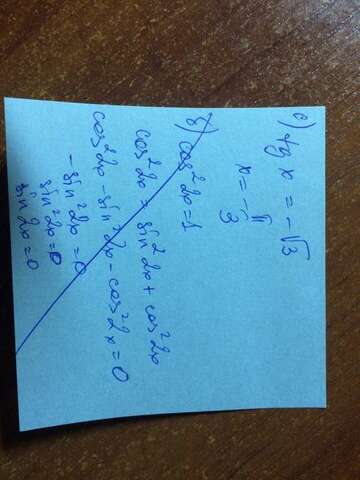 в) tg x = -√3
x = -π/3
б) cos²2x = 1
cos²2x = sin²2x + cos²2x
cos²2x - sin²2x - cos²2x = 0
-sin²2x = 0
sin²2x = 0
sin2x = 0